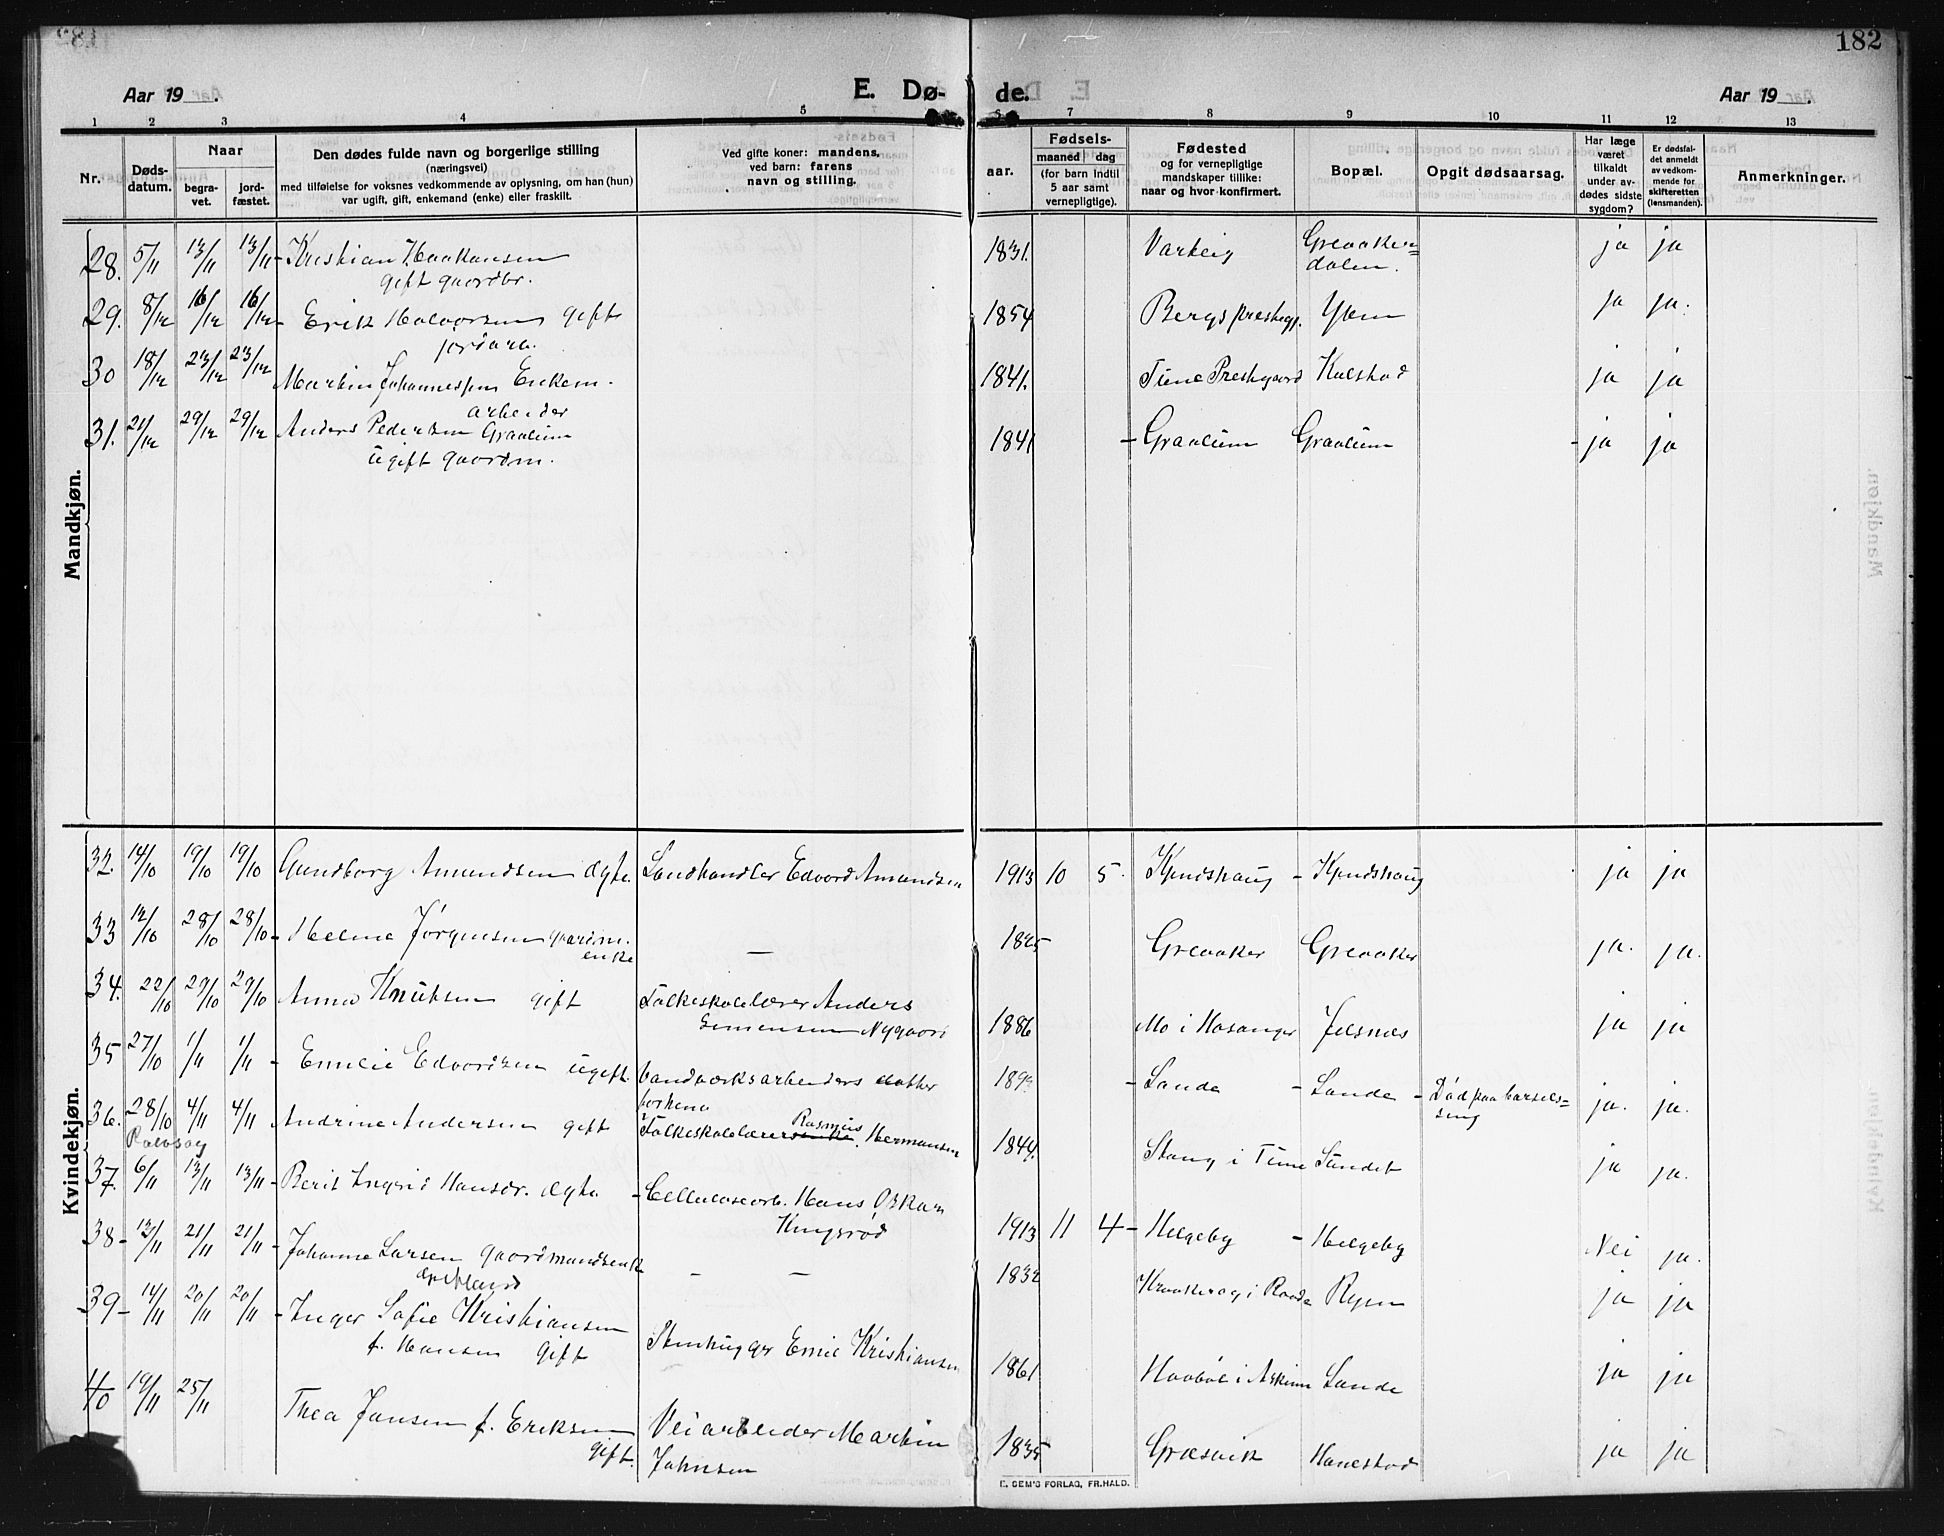 182
Aar 19 .
E. Dø- de.
Aar 19 .
1 2 3 4 5 6 7 8 9 10 11 12 13
Nr.
Døds-
datum.
Naar
begra-
vet.
jord-
fæstet.
Den dødes fulde navn og borgerlige stilling
(næringsvei)
med tilføielse for voksnes vedkommende av oplysning, om han (hun)
var ugift, gift, enkemand (enke) eller fraskilt.
Ved gifte koner: mandens,
ved barn: farens
navn og stilling.
aar.
Fødsels-
maaned dag
(for barn indtil
5 aar samt
vernepligtige).
Fødested
og for vernepligtige
mandskaper tillike:
naar og hvor konfirmert.
Bopæl.
Opgit dødsaarsag.
Har læge
været
tilkaldt
under av-
dødes sidste
sygdom?
Er dødsfal-
det anmeldt
av vedkom-
mende for
skifteretten
(lensmanden).
Anmerkninger.
Mandkjøn.
28. 5/11 13/11 13/11 - Kristian Haakonsen 1831. Varteig Greaaker= ja ja
gift gaardbr. dalen.
29. 8/12 16/12 16/12 - Erik Halvorsen gift 1854 Bergs prestegj. Yven ja ja.
jordarb.
30 18/12 23/12 23/12 Martin Johannessen Enkem. 1841. Tune Prestgaard Kalstad ja ja
arbeider
31. 21/12 29/12 29/12 Anders Pedersen Graalum 1841 - Graalum Graalum - ja ja
ugift gaardm.
Kvindekjøn.
32. 14/10 19/10 19/10 Gundborg Amundsen ægte. Landhandler Edvard Amundsen 1913 10 5 Kjendshaug - Kjendshaug ja ja
33 12/10 28/10 28/10 - Helene Jørgensen gaardm. — 1825 Greaaker Greaaker ja. ja.
enke
34. 22/10 29/10 29/10 Anna Knutsen gift Folkeskolelærer Anders 1886 Mo i Hosanger Jelsnes ja ja
Simensen Nygaard
35 27/10 1/11 1/11 - Emilie Edvardsen ugift. Vandværksarbeiders datter 189 - Sande - Sande - Død paa barsels= ja. ja.
seng
36. 28/10 4/11 4/11 Andrine Andersen gift Folkeskolelærer Rasmus Hermansen 1844. Stang i Tune Sundet ja ja.
Rolvsøy
37. 6/11 13/11 13/11 - Berit Ingrid Hansdr. ægte - Cellulosearb. Hans Oskar 1913 11 4 - Helgeby - Helgeby Nei ja.
Kingsrød
38 - 13/11 21/11 21/11 - Johanne Larsen Gaardmandsenke - — 1832 i Raade Ryen ja ja
39 - 14/11 20/11 20/11 - Inger Sofie Kristiansen Stenhugger Emil Kristiansen 1861 Haabøl i Askim Sande ja ja
f. Hansen gift
40 19/11 25/11 Thea Jansen f. Eriksen Veiarbeider Martin 1835 Græsvik Hanestad ja ja
gift. Johnsen
E. SEM'S FORLAG, FR.HALD.